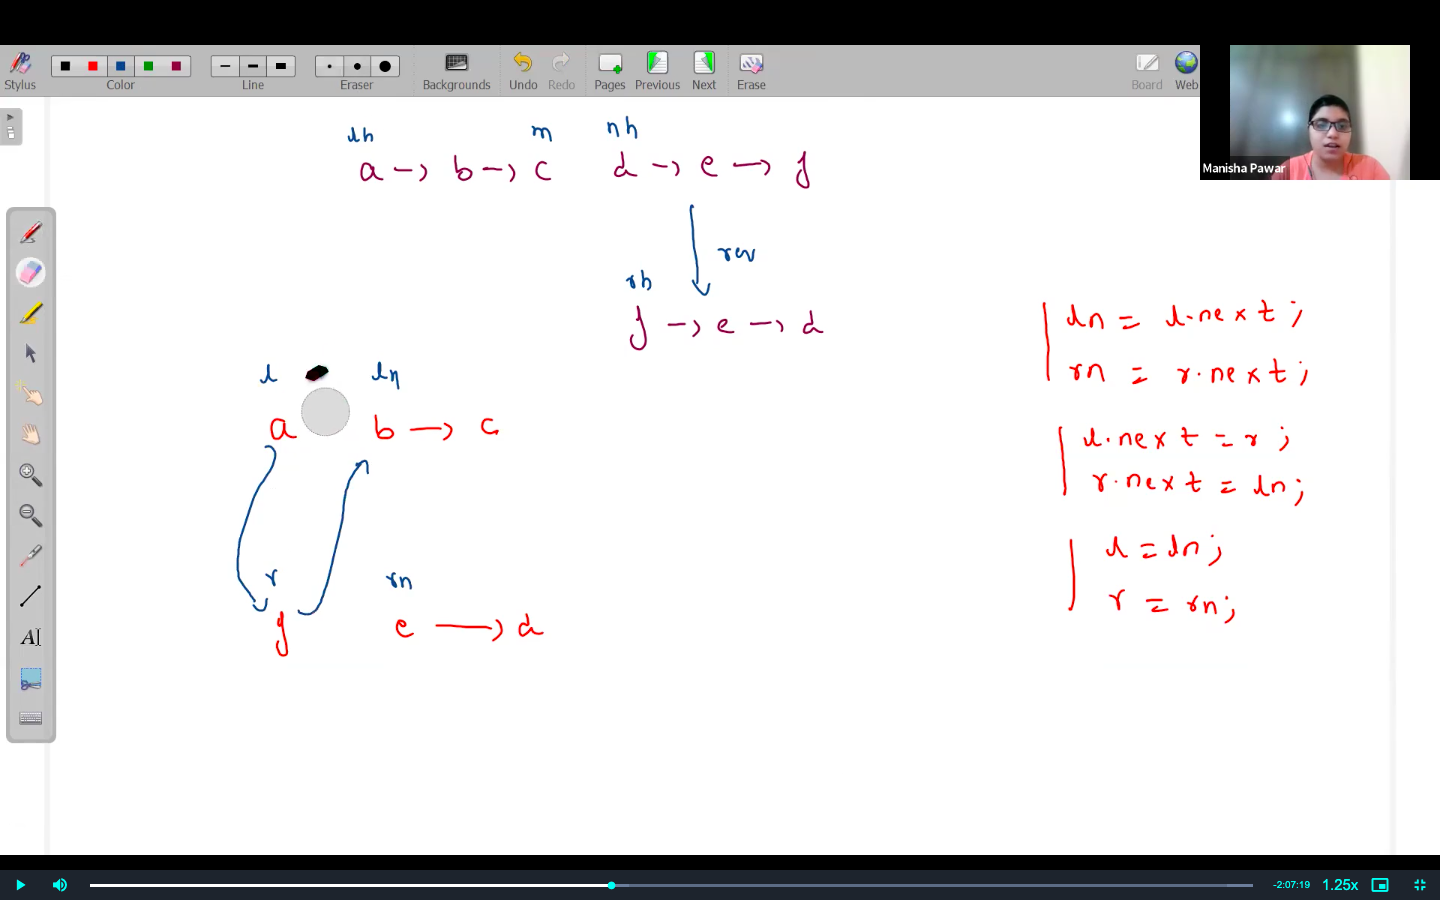 Stylus Color Line Eraser Backgrounds Undo Redo Pages Previous Next Erase Board Web
Manisha Pawar
lh m nh
a -> b -> c d -> e -> f
rev
rh
f -> e -> d
l ln
a b -> c
r rn
f e -> d
ln = l.next;
rn = r.next;
l.next = r;
r.next = ln;
l = ln;
r = rn;
AI
-2:07:19 1.25x